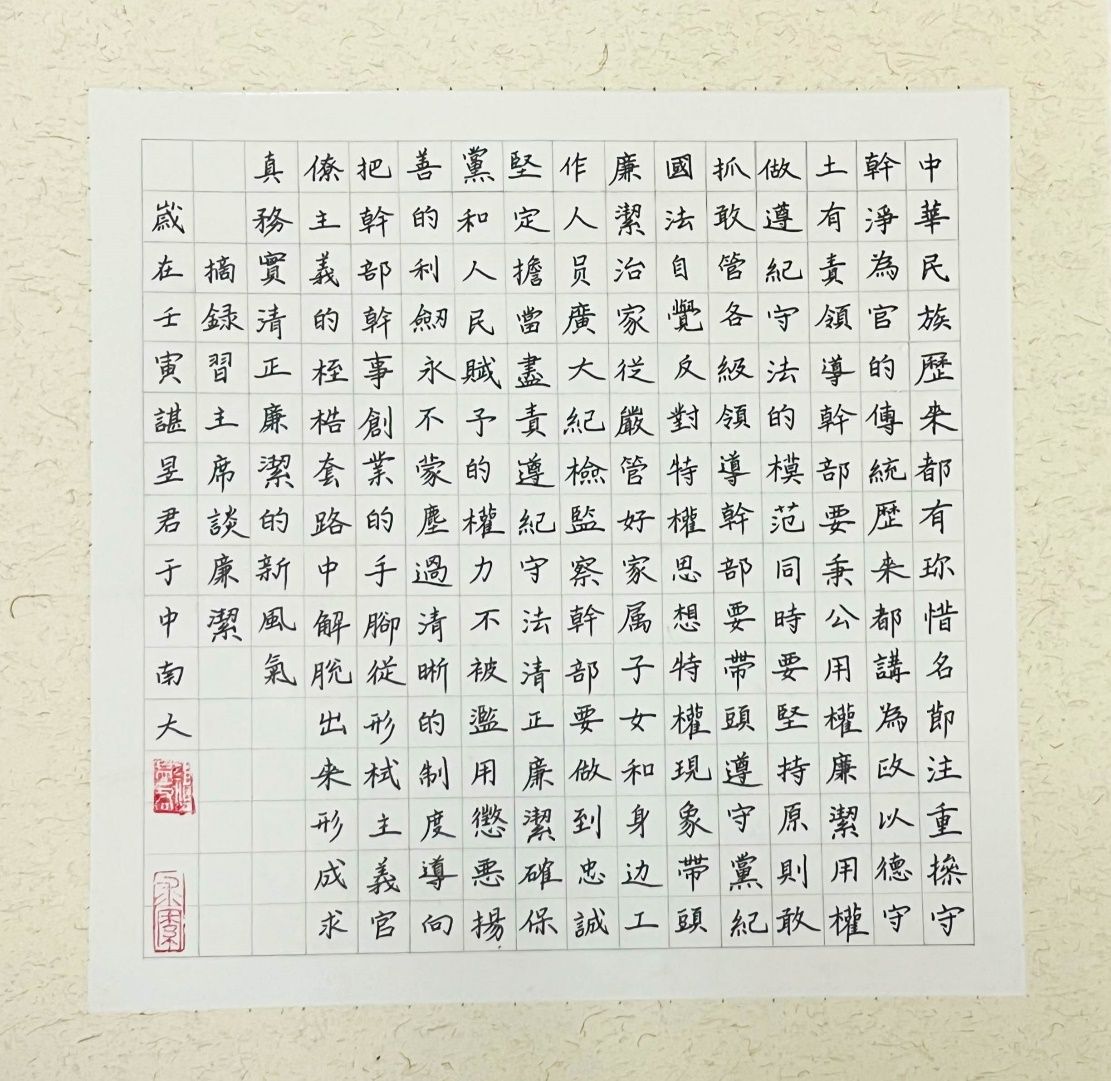 中華民族歷来都有珎惜名節注重操守
幹淨為官的傳統歷来都講為政以德守
土有責領導幹部要秉公用權廉潔用權
做遵紀守法的模范同時要堅持原則敢
抓敢管各級領導幹部要帶頭遵守黨紀
國法自覺反對特權思想特權現象帶頭
廉潔治家從嚴管好家属子女和身边工
作人员廣大紀檢監察幹部要做到忠誠
堅定擔當盡責遵紀守法清正廉潔確保
黨和人民賦予的權力不被濫用懲悪揚
善的利劒永不蒙塵過清晰的制度導向
把幹部幹事創業的手腳從形栻主義官
僚主義的桎梏套路中解脫出来形成求
真務實清正廉潔的新風氣
摘録習主席談廉潔
嵗在壬寅諶昱君于中南大